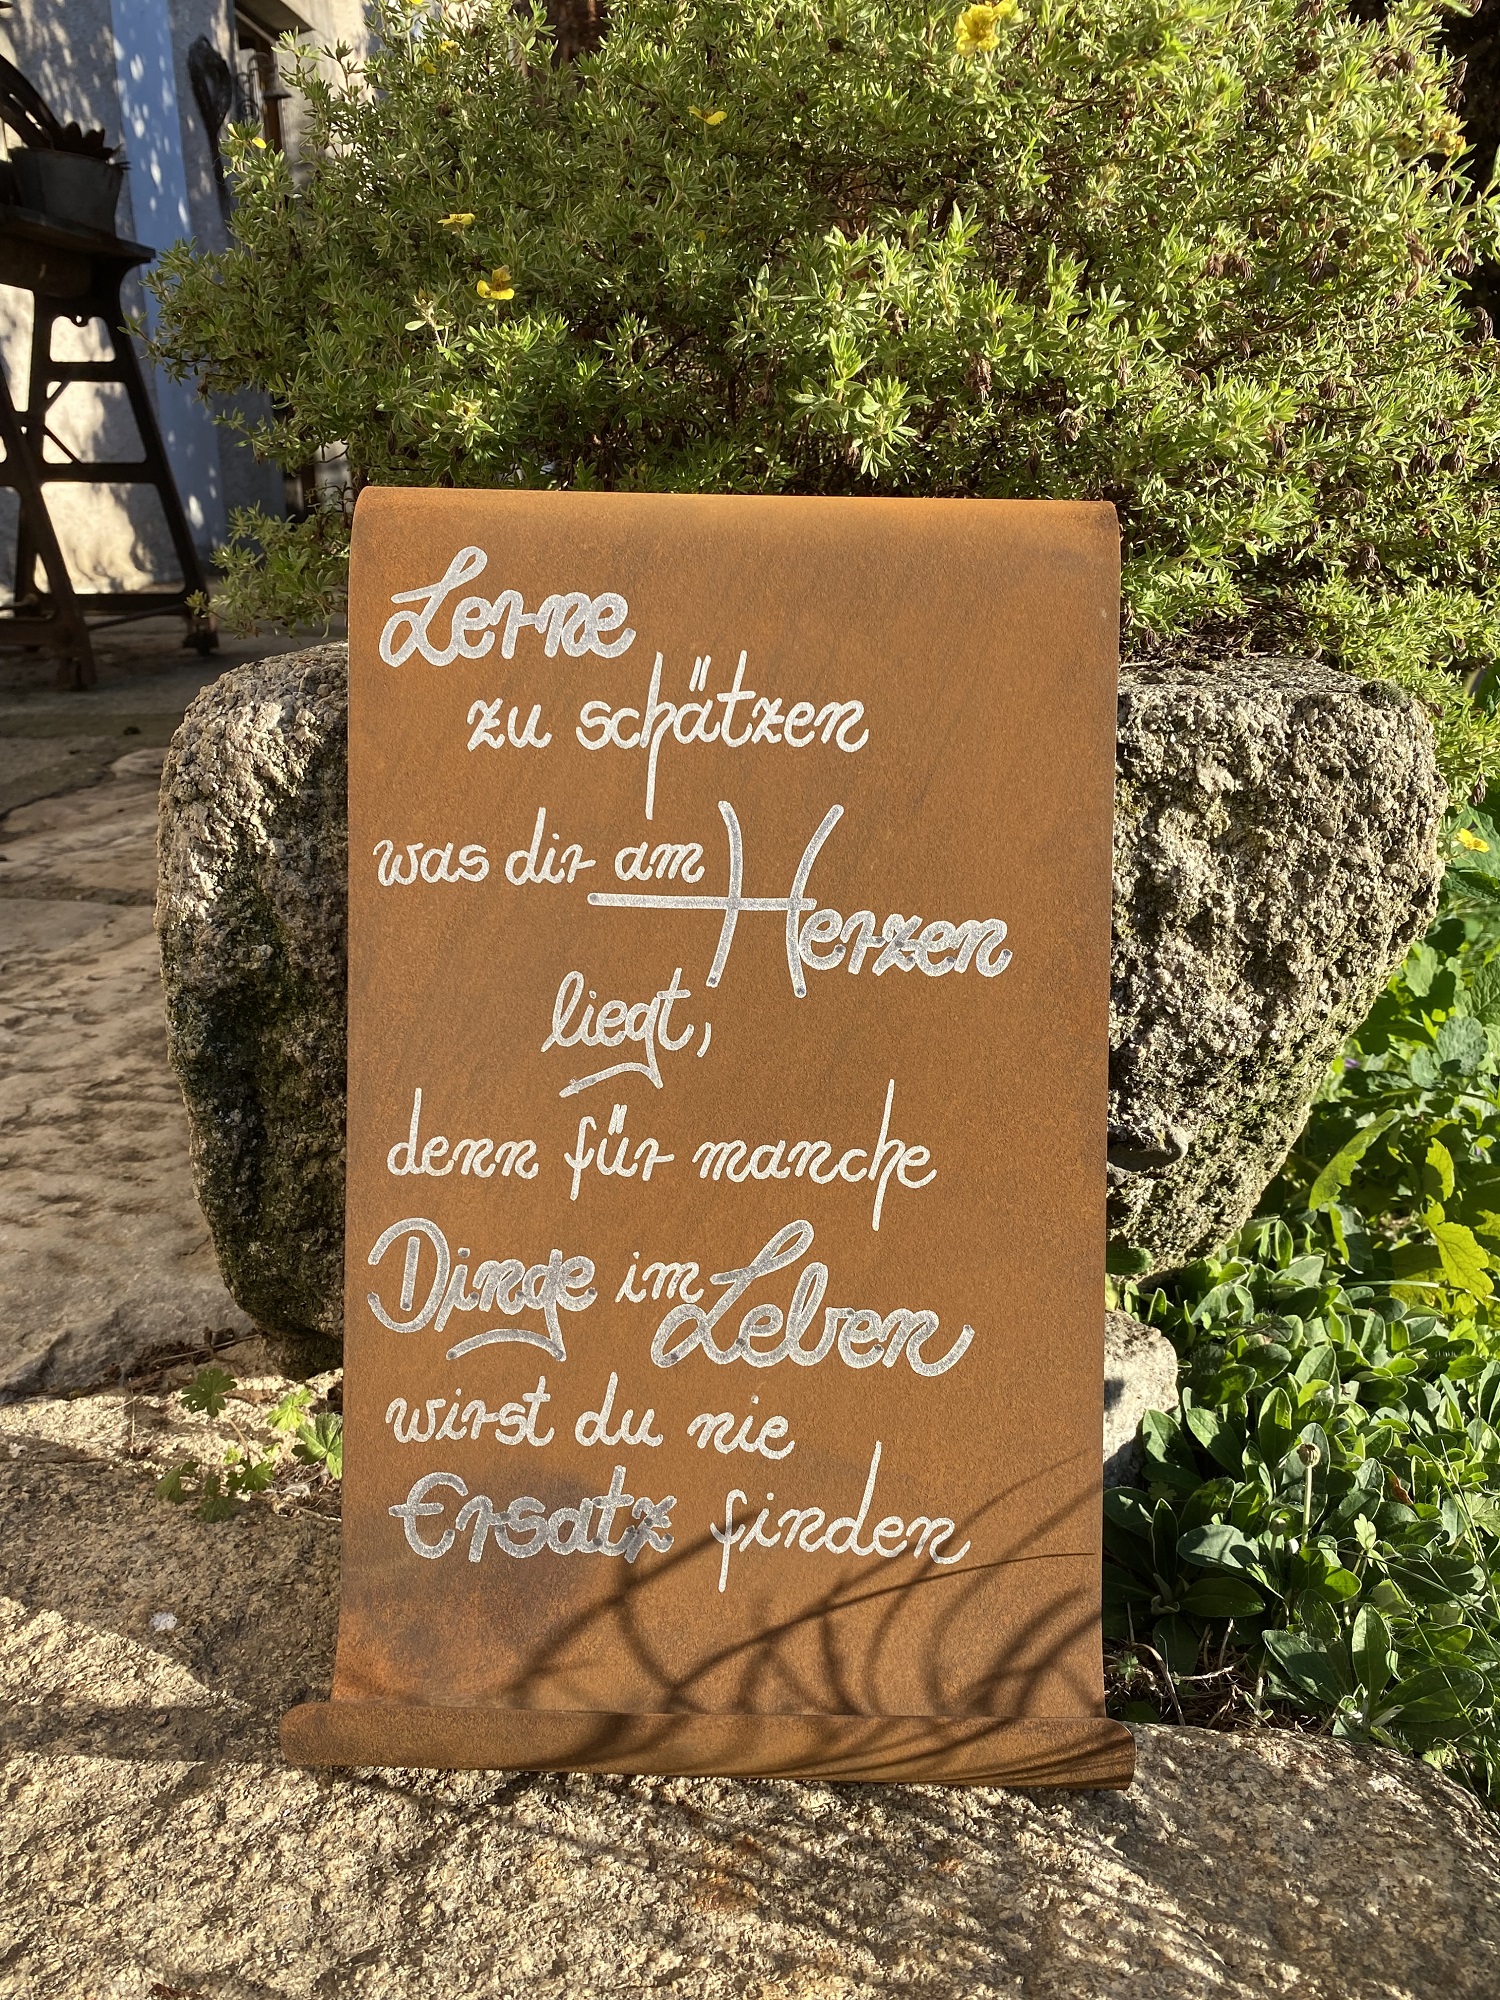 Lerne
zu schätzen
was dir am
Herzen
liegt,
denn für manche
Dinge im Leben
wirst du nie
Ersatz finden